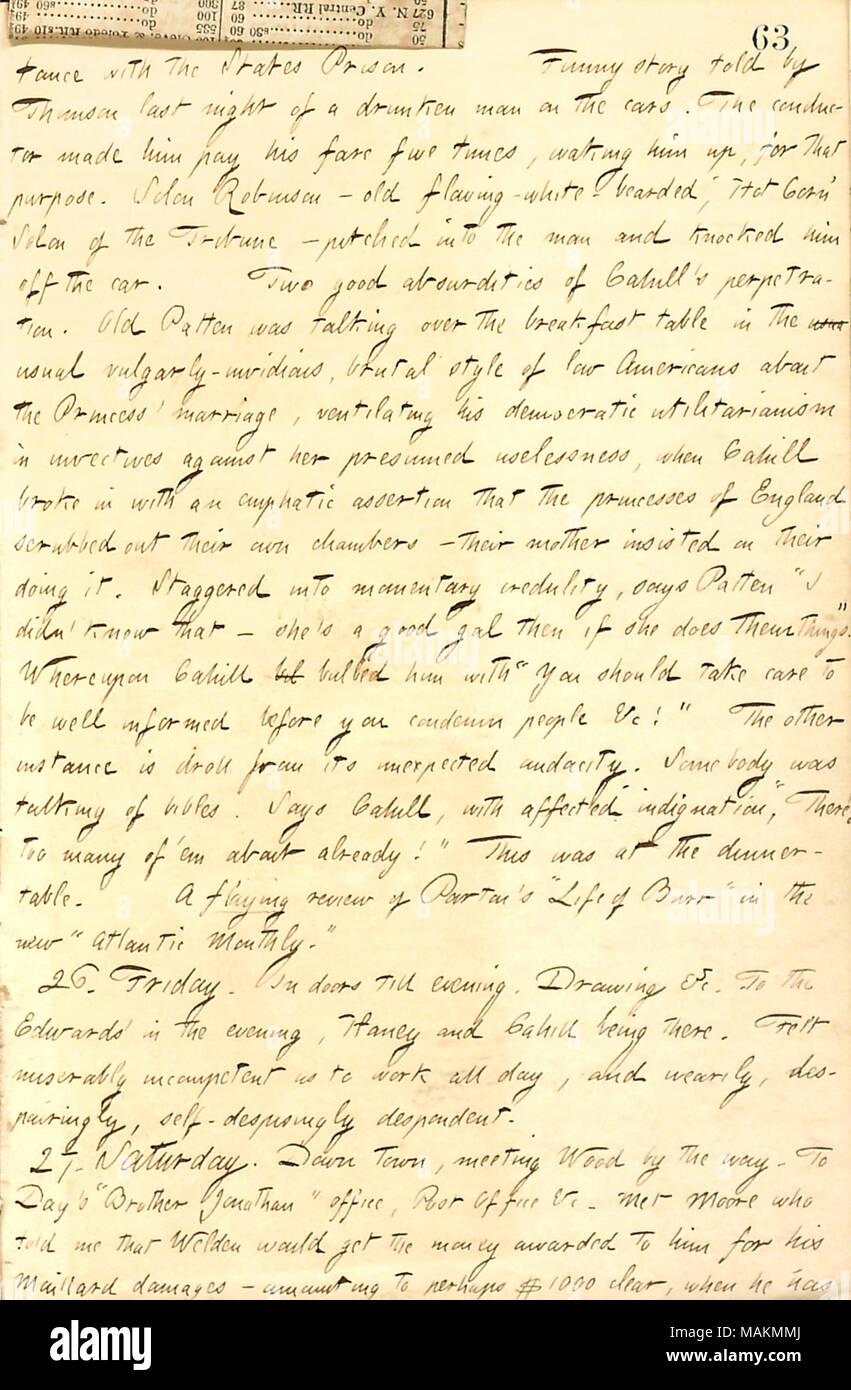 627 N. Y. Central RR
63
tance with the States Prison. Funny story told by
Thomson last night of a drunken man on the cars. The conduc-
tor made him pay his fare five times, waking him up, for that
purpose. Solon Robinson — old flowing-white-bearded, "Hot Corn"
Solon of the Tribune — pitched into the man and knocked him
off the car. Two good absurdities of Cahill's perpetra-
tion. Old Patten was talking over the breakfast table in the usua
usual vulgarly-invidious, brutal style of low Americans about
the Princess' marriage, ventilating his democratic utilitarianism
in invectives against her presumed uselessness, when Cahill
broke in with an emphatic assertion that the princesses of England
scrubbed out their own chambers — their mother insisted on their
doing it. Staggered into momentary credulity, says Patten "I
didn' know that — she's a good gal then if she does them things".
Whereupon Cahill bulbed him with "You should take care to
be well informed before you condemn people &c!" The other
instance is droll from its unexpected audacity. Somebody was
talking of bibles. Says Cahill, with affected indignation, "There
too many of 'em about already!" This was at the dinner-
table. A flaying review of Parton's "Life of Burr" in the
new "Atlantic Monthly."
26. Friday. In doors till evening. Drawing &c. To the
Edwards' in the evening, Haney and Cahill being there. Felt
miserably incompetent as to work all day, and wearily, des-
pairingly, self-despisingly despondent.
27. Saturday. Down town, meeting Wood by the way. To
Day's "Brother Jonathan" office, Post Office &c. Met Moore who
told me that Welden would get the money awarded to him for his
Maillard damages — amounting to perhaps $1000 clear, when he has
alamy
Image ID: MAKMMJ
www.alamy.com